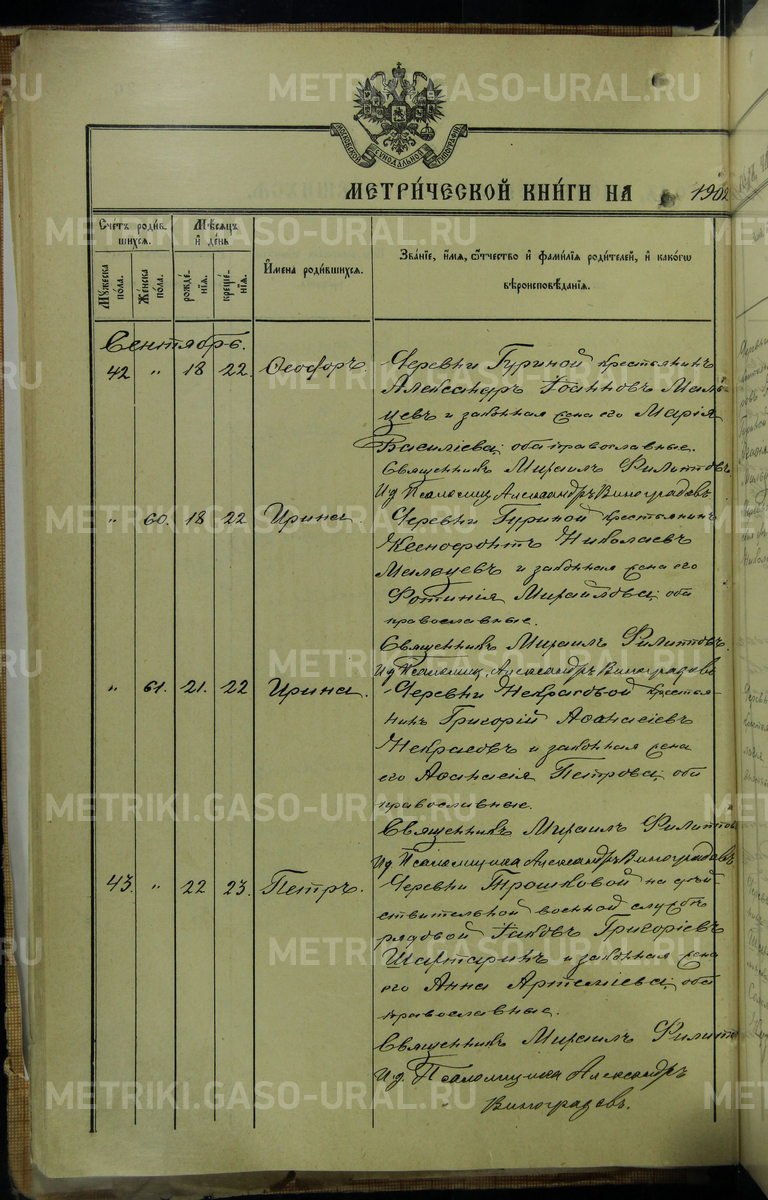 METRIKI.GASO-URAL.RU
МОСКОВСКОЙ СѴНОДАЛЬНОЙ ТИПОГРАФІИ
МЕТРИ́ЧЕСКОЙ КНИ́ГИ НА 1902
Сче́тъ роди́в-
шихся.
Мѣ́сяцъ
и҆ де́нь
И҆мена̀ роди́вшихся.
Зва́нїе, и҆́мя, ѻ҆́тчество и҆ фами́лїя роди́телей, и҆ како́гѡ
вѣроисповѣ́данїя.
Му́жеска по́ла.
Же́нска по́ла.
рожде́нїя.
креще́нїя.
Сентябрь.
42 " 18 22. Ѳеодоръ. Деревни Гуриной крестьянинъ
Александръ Іоанновъ Маль-
цевъ и законная жена его Марія
Васильева; оба православные.
Священникъ Михаилъ Филипповъ
И д Псаломщ Александръ Виноградовъ
" 60. 18 22 Ирина. Деревни Гуриной крестьянинъ
Ксенофонтъ Николаевъ
Мальцевъ и законная жена его
Фотинія Михайлова; оба
православные.
Священникъ Михаилъ Филипповъ.
И д Псаломщ. Александръ Виноградовъ
" 61. 21. 22 Ирина. Деревни Некрасовой крестья-
нинъ Григорій Аѳанасіевъ
Некрасовъ и законная жена
его Аѳанасія Петрова; оба
православные.
Священникъ Михаилъ Филиппов
И д Псаломщика Александръ Виноградовъ
43. " 22 23. Петръ. Деревни Трошковой на дѣй-
ствительной военной службѣ
рядовой Іаковъ Григоріевъ
Шартаринъ и законная жена
его Анна Артеміева; оба
православные.
Священникъ Михаилъ Филипп
И. д. Псаломщика Александръ
Виноградовъ.